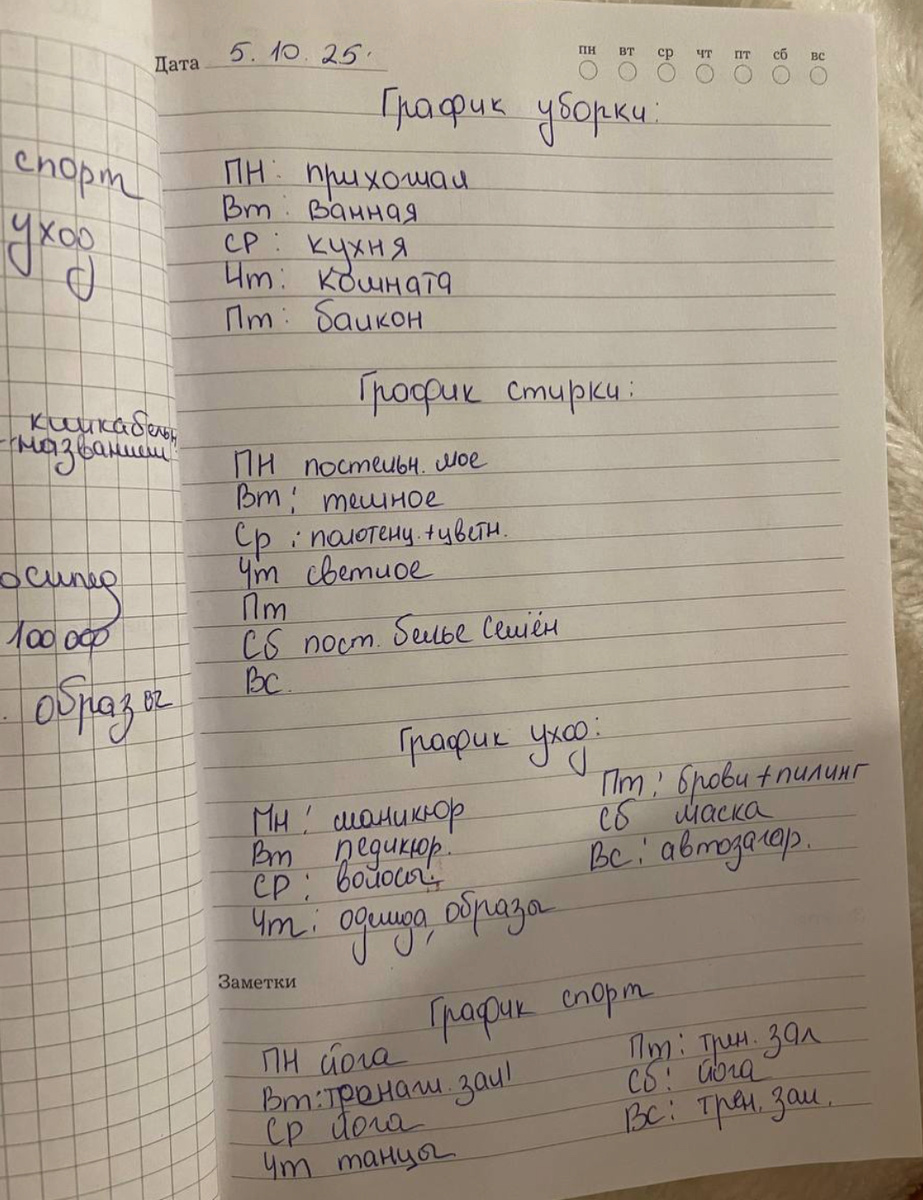 Дата 5.10.25.
пн вт ср чт пт сб вс
График уборки:
ПН: прихожая
Вт: Ванная
СР: кухня
Чт: комната
Пт: балкон
График стирки:
ПН постельн. мое
Вт: темное
Ср: полотенц.+цветн.
Чт светлое
Пт
Сб пост. белье Семён
Вс.
График уход:
ПН: маникюр
Вт педикюр.
СР: волосы
Чт: одежда, образы
Пт: брови+пилинг
Сб маска
Вс: автозагар.
Заметки
График спорт
ПН йога
Вт: тренаж. зал!
СР йога
Чт танцы
Пт: трен. зал
Сб: йога
Вс: трен. зал.
спорт
уход
названием
осипед
100 000
образы